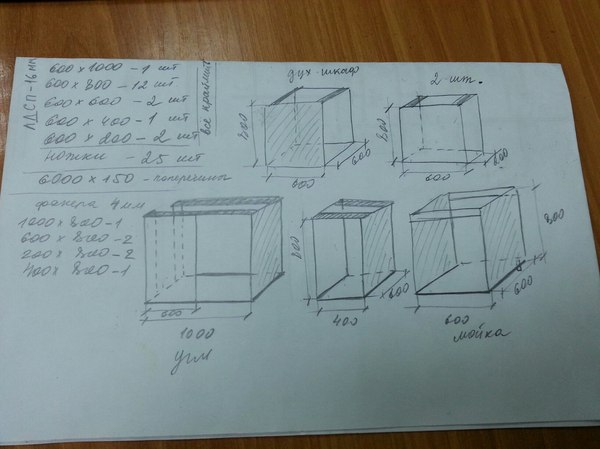 ЛДСП-16мм
600 x 1000 - 1 шт
600 x 800 - 12 шт
600 x 600 - 2 шт
600 x 400 - 1 шт
600 x 200 - 2 шт
ножки - 25 шт
6000 x 150 - поперечины
фанера 4мм
1000 x 800 - 1
600 x 800 - 2
200 x 800 - 2
400 x 800 - 1
дух. шкаф
800
600
600
2-шт.
800
600
600
600
1000
угл
800
400
600
800
600
600
мойка